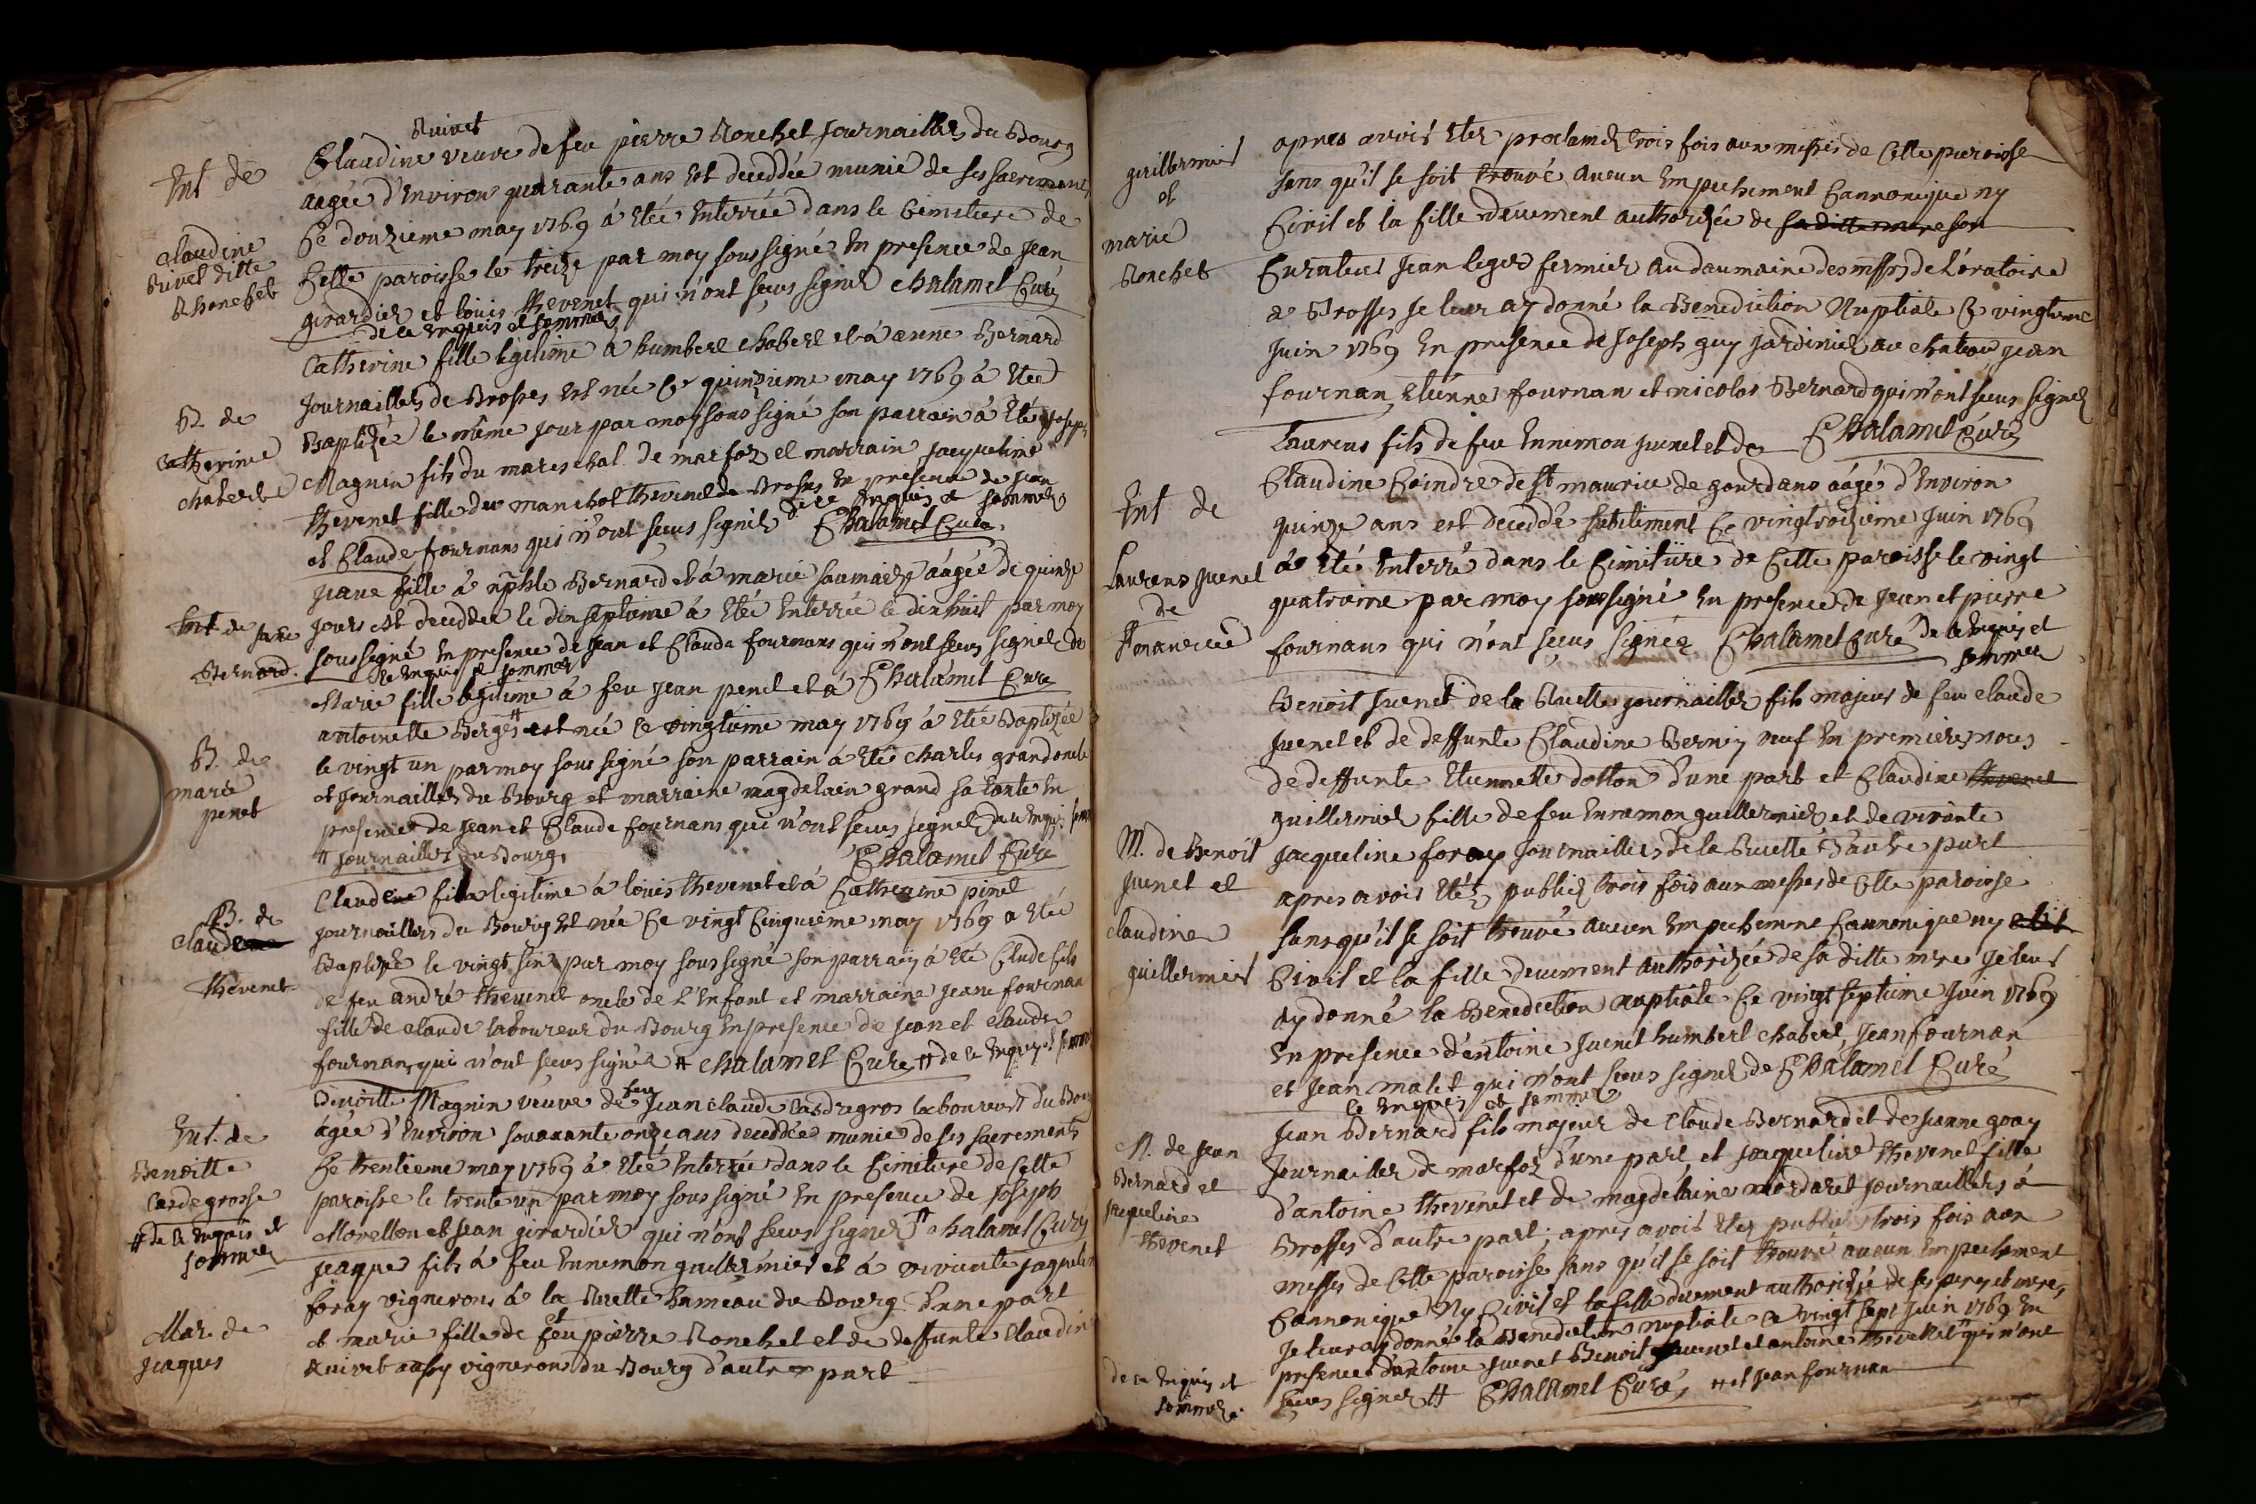 Ruivet
Ent de
Claudine
Ruivet ditte
Rhonchet
Claudine veuve de feu pierre Ronchet journaillier du Bourg
aagée d'Environ quarante ans est deceddée munie de ses sacremens
Ce douzieme may 1769 à Eteé Enterrée dans le Cimitiere de
Cette paroisse le treize par moy soussigné En presence de jean
girardier et loüis thevenet qui n'ont sceus signer Chalamel Curé
de ce enquis et sommés
B. de
Catherine
chabert
Catherine fille legitime à humbert chabert et à anne Bernard
journailliers de Brosses est née Ce quinzieme may 1769 à Eteé
Baptizée le même jour par moy soussigné son parrain à Eté joseph
Magnin fils du mareschal de marfoz et marraine jacqueline
thevenet fille du manichol thevenet de Brosses En presence de jean
et Claude fournans qui n'ont sceus signér de ce enquis et sommés
Chalamel Curé
Ent de jane
Bernard.
jeane fille à nphle Bernard et à marie soumaize aâgée de quinze
jours est deceddée le dixseptieme à Eteé Enterrée le dixhuit par moy
soussigné En presence de jean et Claude fournans qui n'ont sceus signer de
ce enquis et sommés
B. de
marie
penet
Marie fille legitime à feu jean penet et à Chalamel Curé
antoinette Berger # est née Ce vingtieme may 1769 à Eteé Baptizée
le vingt un par moy soussigné son parrain à Eté charles grand oncle
et journaillier du Bourg et marraine magdelain grand sa tante En
presence de jean et Claude fournans qui n'ont sceus signer de ce enquis
# journailliers du Bourg Chalamel Curé
B. de
Claude
thevenet
Claude fils legitime à loüis thevenet et à Catherine pinet
journailliers du Bourg est née Ce vingt Cinquieme may 1769 a Eteé
Baptizé le vingt six par moy soussigné son parrain à Eté Clude fils
de feu andré thevenet oncle de L'Enfant et marraine jeane fournan
fille de claude laboureur du Bourg En presence de jean et claude
fournans qui n'ont sceus signér # Chalamel Curé # de ce enquis et sommés
Ent. de
Benoitte
Casdegrosse
# de ce enquis et
sommés
Benoitte Magnin veuve de feu jean claude Casdregros laboureur du Bourg
âgée d'Environ souaxante onze ans deceddée munie de ses sacrements
Ce trentieme may 1769 à Eteé Enterrée dans le Cimitiere de Cette
paroisse le trente un par moy soussigné En presence de joseph
Morellon et jean girardier qui n'ont sceus signer # Chalamel Curé
Mar. de
jacques
jacque fils à feu Ennemon guillermier et à vivante jaqueline
foray vignerons à la Ruette hameau du Bourg d'une part
et marie fille de feu pierre Ronchet et de deffunte Claudine
Ruivet aussy vignerons du Bourg d'autre part
guillermier
et
marie
Ronchet
apres avoir Etez proclamez trois fois aux messes de Cette paroisse
sans qu'il se soit trouvé aucun Empechement Cannonique ny
Civil et la fille deuement authorizée de sa ditte mere son
Curateur jean leger fermier au daumaine des mssrs de L'oratoire
a Brosses je leur ay donné la Benediction Nuptiale Ce vingtieme
juin 1769 En presence de joseph guy jardinier au chateau jean
fournan, etienne fournan et nicolas Bernard qui n'ont sceus signer
Chalamel Curé
Ent de
Laurens juenet
de
Laurens fils de feu Ennemon juenet et de
Claudine Coindre de st maurice de gourdans aâgé d'Environ
quinze ans est deceddé subitement Ce vingtroizieme juin 1769
à Eté Enterré dans le Cimitiere de Cette paroisse le vingt
quatrieme par moy soussigné En presence de jean et pierre
fournans qui n'ont sceus signér Chalamel Curé de ce enquis et
sommés
M. de Benoit
juenet et
Claudine
guillermier
Benoit juenet de la Ruette journaillier fils majeur de feu claude
juenet et de deffunte Claudine Berniy veuf En premieres noces
de deffunte Etiennette dotton d'une part et Claudine thevenet
guillermier fille de feu Ennemon guillermier et de vivante
jacqueline foray journailliers de la Ruette d'autre part
apres avoir Etéz publiez trois fois aux messes de Cette paroisse
sans qu'il se soit trouvé aucun Empechemene Cannonique ny
Civil et la fille deuement authorizée de sa ditte mere je leur
ay donné la Benediction nuptiale Ce vingt septieme juin 1769
En presence d'antoine juenet humbert chabert, jean fournan
et jean malet qui n'ont sceus signer de Chalamel Curé
ce enquis et sommés
M. de jean
Bernard et
jaqueline
thevenet
jean Bernard fils majeur de Claude Bernard et de jeanne goay
journaillier de marfoz d'une part et jacqueline thevenet fille
d'antoine thevenet et de magdelaine mordaret journailliers à
Brosses d'autre part; apres avoir Etez publiés trois fois aux
messes de Cette paroisse sans qu'il se soit trouvé aucun Empechement
Cannonique Ny Civil et la fille duement authorizée de ses pere et mere,
je leur ay donné la Benediction nuptiale Ce vingt sept juin 1769 En
presence d'antoine juenet Benoit juenet et antoine thevenet # qui n'ont
sceus signer # Chalamel Curé, # et jean fournan
de ce enquis et
sommés